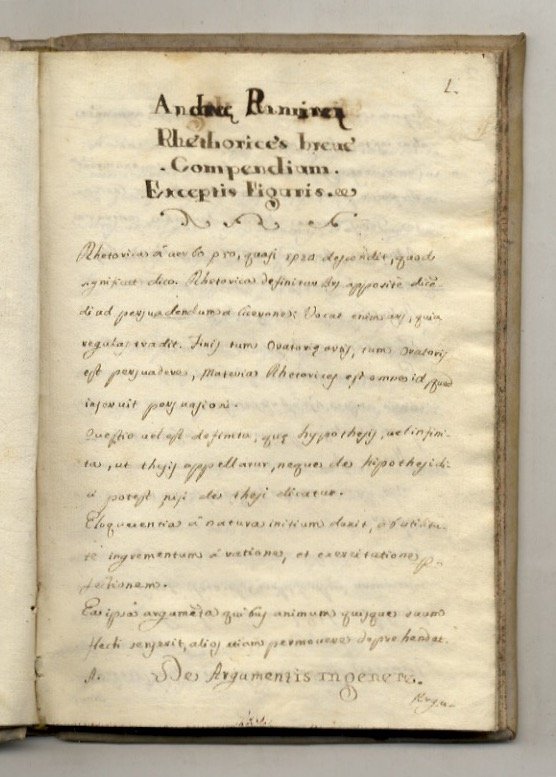 1.
Andreę Ramirez
Rhethorices breue
Compendium.
Exceptis Figuris.
Rhetorica á uerbo pro, quasi rpro descendit, quod
significat dico. Rhetorica definitur Ars apposité dicē-
di ad persuadendum a Cicerone: Vocat enim ars, quia
regulas tradit. Finis tum Oratorię artis, tum Oratoris
est persuadere, Materia Rhetorices est omne id quod
inseruit persuasioni.
Questio uel est definita, quę hypothesis, uel infini-
ta, ut thesis appellatur, neque de hipothesi di-
ci potest, nisi de thesi dicatur.
Eloquentia á natura initium duxit, ab utilita-
te incrementum á ratione, et exercitatione
fectionem.
Ea ipsa argumēta quibus animum quisque suum
flecti senserit, alios etiam permouere deprehendet.
A. De Argumentis in genere.
Argu-